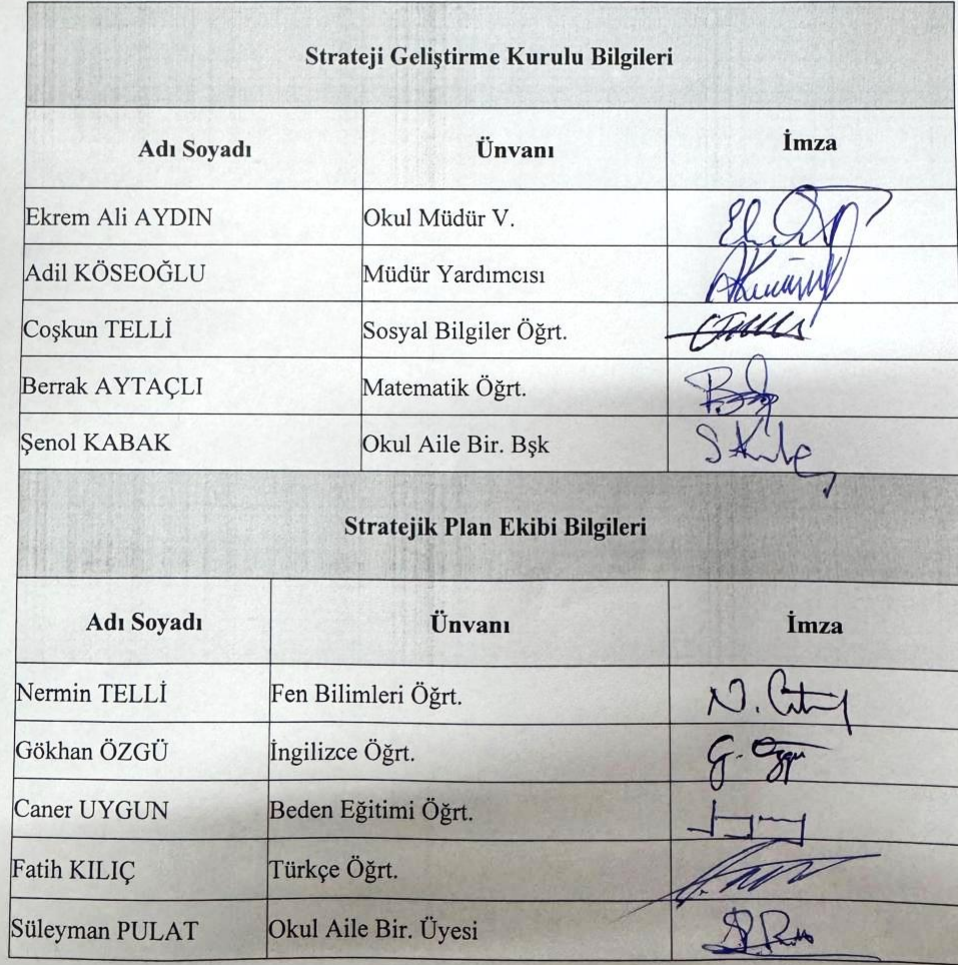 Strateji Geliştirme Kurulu Bilgileri
Adı Soyadı Ünvanı İmza
Ekrem Ali AYDIN Okul Müdür V.
Adil KÖSEOĞLU Müdür Yardımcısı
Coşkun TELLİ Sosyal Bilgiler Öğrt.
Berrak AYTAÇLI Matematik Öğrt.
Şenol KABAK Okul Aile Bir. Bşk
Stratejik Plan Ekibi Bilgileri
Adı Soyadı Ünvanı İmza
Nermin TELLİ Fen Bilimleri Öğrt.
Gökhan ÖZGÜ İngilizce Öğrt. G. Özgü
Caner UYGUN Beden Eğitimi Öğrt.
Fatih KILIÇ Türkçe Öğrt.
Süleyman PULAT Okul Aile Bir. Üyesi